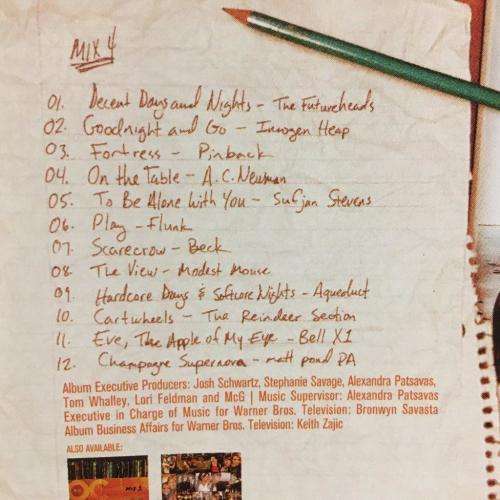 MIX 4
01. Decent Days and Nights - The Futureheads
02. Goodnight and Go - Imogen Heap
03. Fortress - Pinback
04. On the Table - A.C. Newman
05. To Be Alone With You - Sufjan Stevens
06. Play - Flunk
07. Scarecrow - Beck
08. The View - Modest Mouse
09. Hardcore Days & Softcore Nights - Aqueduct
10. Cartwheels - The Reindeer Section
11. Eve, The Apple of My Eye - Bell X1
12. Champagne Supernova - matt pond PA
Album Executive Producers: Josh Schwartz, Stephanie Savage, Alexandra Patsavas,
Tom Whalley, Lori Feldman and McG | Music Supervisor: Alexandra Patsavas
Executive in Charge of Music for Warner Bros. Television: Bronwyn Savasta
Album Business Affairs for Warner Bros. Television: Keith Zajic
ALSO AVAILABLE: